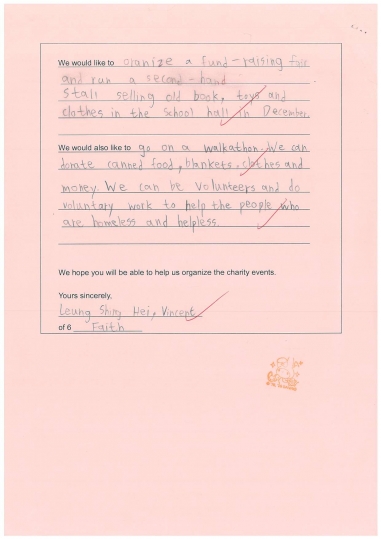 We would like to oranize a fund-raising fair
and run a second-hand
stall selling old book, toys and
clothes in the school hall in December.
We would also like to go on a walkathon. We can
donate canned food, blankets, clothes and
money. We can be volunteers and do
voluntary work to help the people who
are homeless and helpless.
We hope you will be able to help us organize the charity events.
Yours sincerely,
Leung Shing Hei, Vincent
of 6 Faith